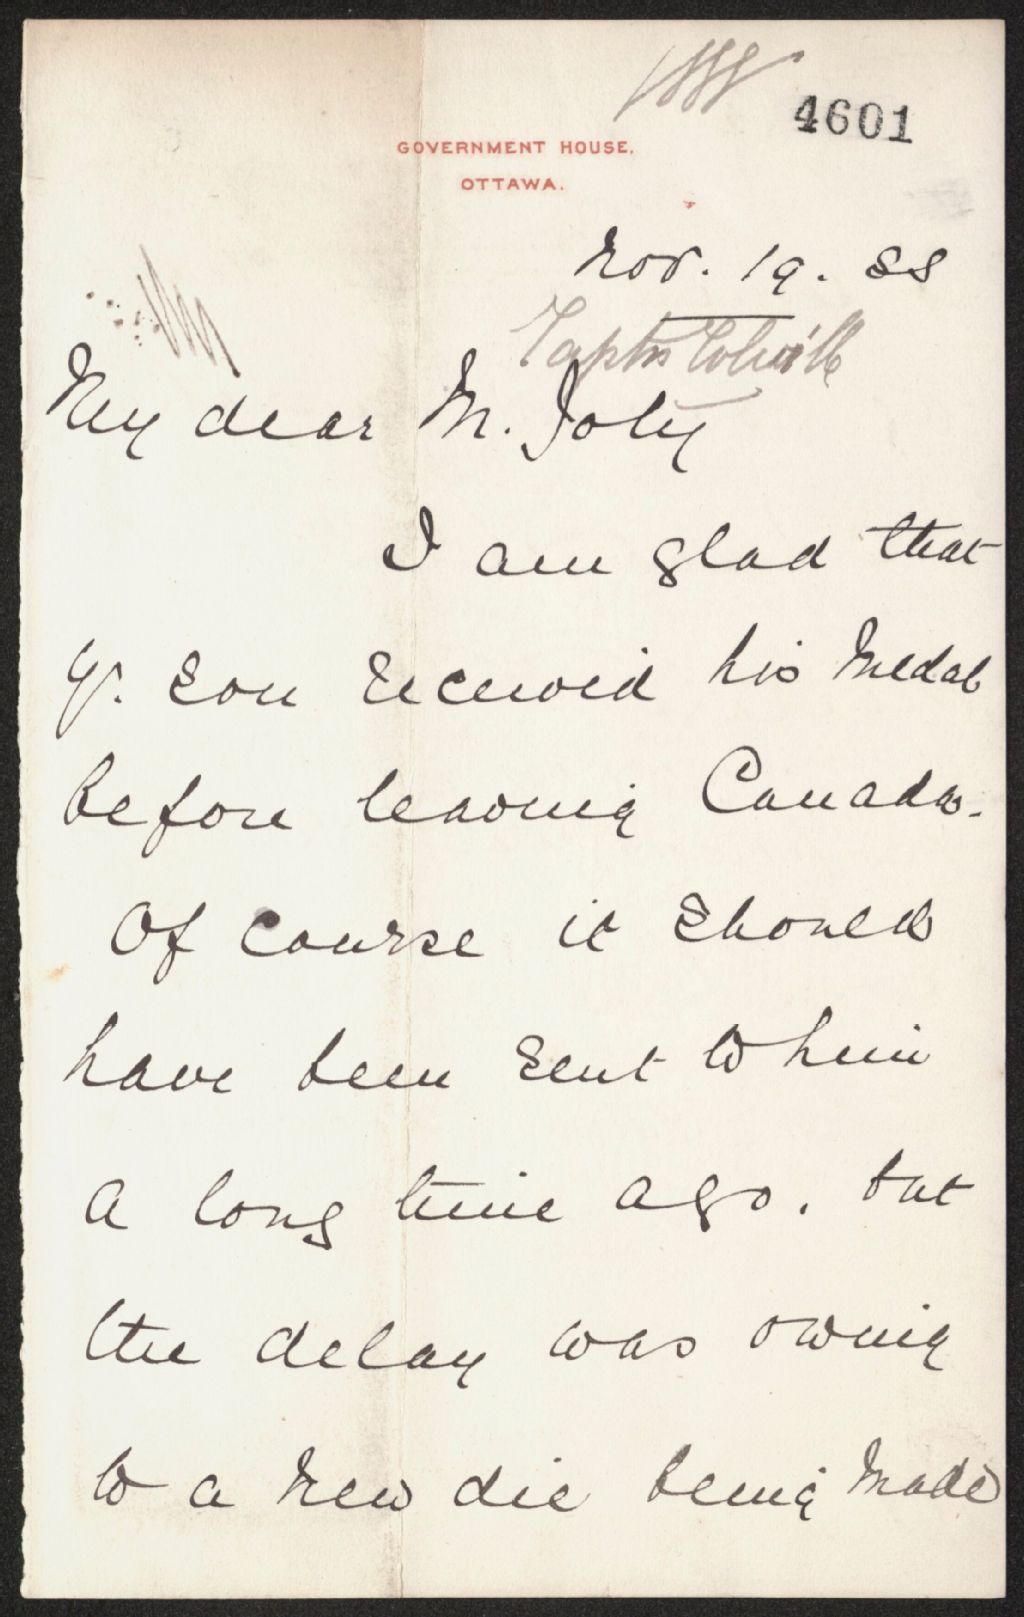 4601
GOVERNMENT HOUSE.
OTTAWA.
Nov. 19. 88
Captn Colville
My dear M. Joly
I am glad that
yr. son received his Medal
before leaving Canada.
Of course it should
have been sent to him
a long time ago, but
the delay was owing
to a new die being made